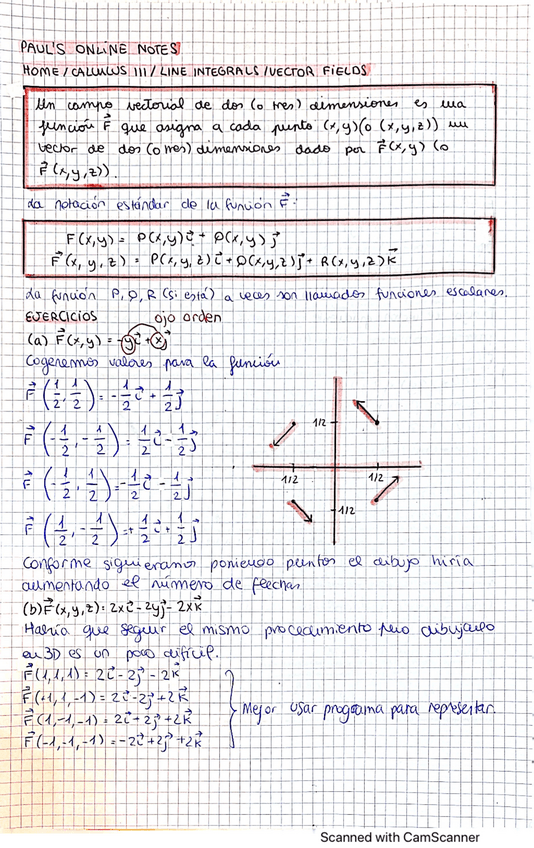 PAUL'S ONLINE NOTES
HOME / CALULUS III / LINE INTEGRALS / VECTOR FIELDS
Un campo vectorial de dos (o tres) dimensiones es una
función F⃗ que asigna a cada punto (x,y) (o (x,y,z)) un
vector de dos (o tres) dimensiones dado por F⃗(x,y) (o
F⃗(x,y,z)).
La notación estándar de la función F⃗:
F(x,y) = P(x,y)i⃗ + Q(x,y)j⃗
F⃗(x,y,z) = P(x,y,z)i⃗ + Q(x,y,z)j⃗ + R(x,y,z)k⃗
La función P, Q, R (si está) a veces son llamados funciones escalares.
EJERCICIOS ojo orden
(a) F⃗(x,y) = -yi⃗ + xj⃗
Cogeremos valores para la función
F⃗(1/2, 1/2) = -1/2 i⃗ + 1/2 j⃗
F⃗(-1/2, -1/2) = 1/2 i⃗ - 1/2 j⃗
F⃗(-1/2, 1/2) = -1/2 i⃗ - 1/2 j⃗
F⃗(1/2, -1/2) = + 1/2 i⃗ + 1/2 j⃗
1/2
1/2 1/2
1/2
Conforme siguieramos poniendo puntos el dibujo hiria
aumentando el número de flechas
(b) F⃗(x,y,z) = 2xi⃗ - 2yj⃗ - 2xk⃗
Habría que seguir el mismo procedimiento pero dibujarlo
en 3D es un poco difícil.
F⃗(1,1,1) = 2i⃗ - 2j⃗ - 2k⃗
F⃗(+1,1,-1) = 2i⃗ - 2j⃗ + 2k⃗
F⃗(1,-1,-1) = 2i⃗ + 2j⃗ + 2k⃗
F⃗(-1,-1,-1) = -2i⃗ + 2j⃗ + 2k⃗
Mejor usar programa para representar.
Scanned with CamScanner